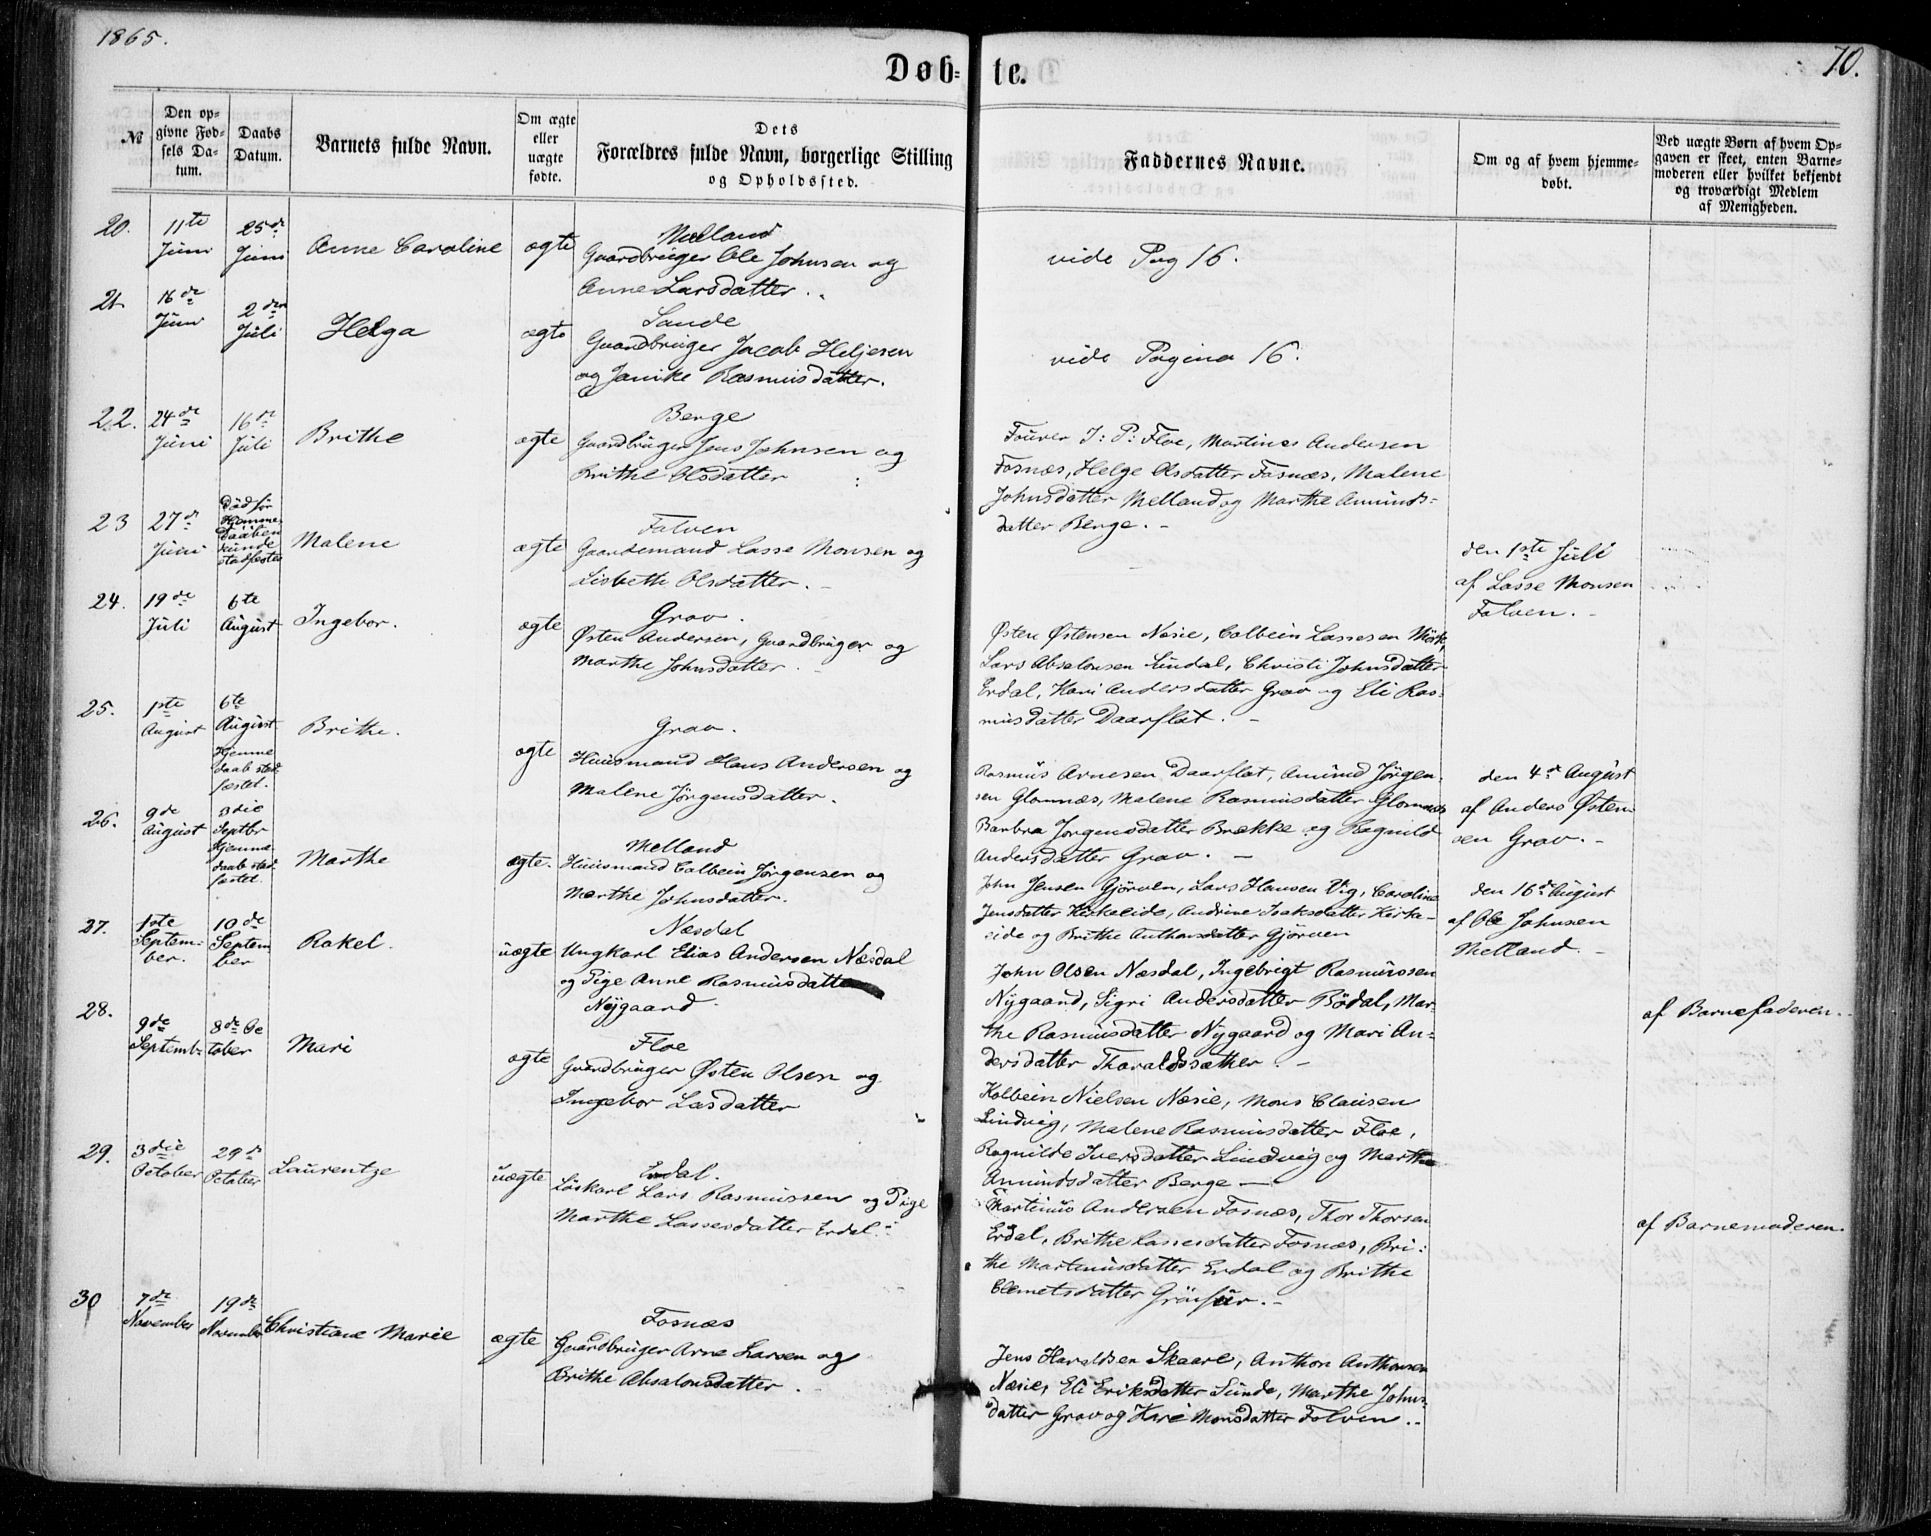 1865.
Døb-
te.
70.
№
Den op-
givne Fød-
sels Da-
tum.
Daabs
Datum.
Barnets fulde Navn.
Om ægte
eller
uægte
fødte.
Dets
Forældres fulde Navn, borgerlige Stilling
og Opholdssted.
Faddernes Navne.
Om og af hvem hjemme-
døbt.
Ved uægte Børn af hvem Op-
gaven er skeet, enten Barne-
moderen eller hvilket bekjendt
og troværdigt Medlem
af Menigheden.
20.
11te
Juni
25de
Juni
Anne Caroline
ægte
Melland
Gaardbruger Ole Johnsen og
Anne Larsdatter.
vide Pag 16.
21.
16de
Juni
2den
Juli
Helga
ægte
Sande
Gaardbruger Jacob Heljesen
og Janike Rasmusdatter.
vide Pagina 16.
22.
24de
Juni
16de
Juli
Brithe
ægte
Berge
Gaardbruger Jens Johnsen og
Brithe Olsdatter
Fourer J: P: Floe, Martinus Andersen
Fosnæs, Helge Olsdatter Fosnæs, Malene
Johnsdatter Melland og Marthe Amunds-
datter Berge. -
23
27de
Juni
Død før
Hjemme
Daaben
kunde
stadfestes
Malene
ægte
Folven
Gaardmand Lasse Monsen og
Lisbeth Olsdatter. -
den 1ste Juli
af Lasse Monsen
Folven. -
24.
19de
Juli
6te
August
Ingebor.
ægte
Grov.
Østen Andersen, Gaardbruger og
Marthe Johnsdatter.
Østen Østensen Næsie, Colbein Lassesen Mørk,
Lars Absalonsen Lindal, Christi Johnsdatter
Erdal, Kari Andersdatter Grov og Eli Ras-
musdatter Daarflat. -
25.
1ste
August
6te
August
Hjemme
daab stad
fæstet.
Brithe.
ægte
Grov.
Huusmand Hans Andersen og
Malene Jørgensdatter.
Rasmus Arnesen Daarflat, Amund Jørgen-
sen Glomnæs, Malene Rasmusdatter Glomnæs
Barbra Jørgensdatter Brække og Ragnild
Andersdatter Grov. -
den 4de August
af Anders Østen-
sen Grov. -
26.
9de
August
3die
Septbr
Hjemme
daab stad
fæstet.
Marthe
ægte.
Melland
Huusmand Colbein Jørgensen og
Marthe Johnsdatter.
John Jensen Gjørven, Lars Hansen Vig, Caroline
Jensdatter Kirkeeide, Andrine Isaksdatter Kirke-
eide og Brithe Anthonsdatter Gjørven
den 16de August
af Ole Johnsen
Melland. -
27.
1ste
Septem-
ber.
10de
Septem
ber
Rakel.
uægte
Næsdal
Ungkarl Elias Andersen Næsdal
og Pige Anne Rasmusdatter
Nygaard
John Olsen Næsdal, Ingebrigt Rasmussen
Nygaard, Sigri Andersdatter Bødal, Mar-
the Rasmusdatter Nygaard og Mari An-
dersdatter Thoraldssæther. -
af Barnefaderen.
28.
9de
Septemb-
8de Oc
tober
Mari
ægte
Floe
Gaardbruger Østen Olsen og
Ingebor Lasdatter
Kolbein Nielsen Næsie, Mons Clausen
Lindvig, Malene Rasmusdatter Floe,
Ragnilde Iversdatter Lindvig og Marthe
Amundsdatter Berge -
29.
3die
October
29de
October
Laurentze
uægte
Erdal.
Løskarl Lars Rasmussen og Pige
Marthe Lassesdatter Erdal. -
Martinus Andersen Fosnæs, Thor Thorsen
Erdal, Brithe Lassesdatter Fosnæs, Bri-
the Martinusdatter Erdal og Brithe
Clemetsdatter Grønfur. -
af Barnemoderen.
30
7de
November
19de
November
Christiane Marie
ægte
Fosnæs
Gaardbruger Arne Larsen og
Brithe Absalonsdatter.
Jens Haraldsen Skaare, Anthon Anthonsen
Næsie, Eli Eriksdatter Sunde, Marthe Johns-
datter Grov og Kari Monsdatter Folven. -